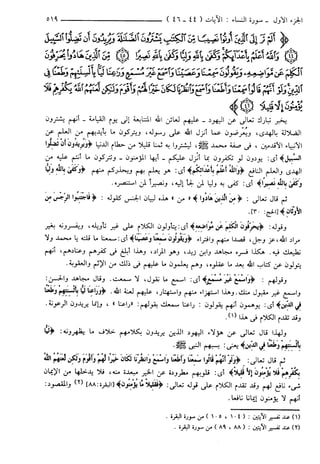 الجزء الأول - سورة النساء : الآيات (٤٤ - ٤٦) ٥١٩
﴿أَلَمْ تَرَ إِلَى الَّذِينَ أُوتُوا نَصِيبًا مِنَ الْكِتَابِ يَشْتَرُونَ الضَّلَالَةَ وَيُرِيدُونَ أَنْ تَضِلُّوا السَّبِيلَ
(٤٤) وَاللَّهُ أَعْلَمُ بِأَعْدَائِكُمْ وَكَفَى بِاللَّهِ وَلِيًّا وَكَفَى بِاللَّهِ نَصِيرًا (٤٥) مِنَ الَّذِينَ هَادُوا يُحَرِّفُونَ
الْكَلِمَ عَنْ مَوَاضِعِهِ وَيَقُولُونَ سَمِعْنَا وَعَصَيْنَا وَاسْمَعْ غَيْرَ مُسْمَعٍ وَرَاعِنَا لَيًّا بِأَلْسِنَتِهِمْ وَطَعْنًا فِي
الدِّينِ وَلَوْ أَنَّهُمْ قَالُوا سَمِعْنَا وَأَطَعْنَا وَاسْمَعْ وَانْظُرْنَا لَكَانَ خَيْرًا لَهُمْ وَأَقْوَمَ وَلَكِنْ لَعَنَهُمُ اللَّهُ بِكُفْرِهِمْ فَلَا يُؤْمِنُونَ
إِلَّا قَلِيلًا (٤٦)﴾
يخبر تبارك تعالى عن اليهود - عليهم لعائن الله المتتابعة إلى يوم القيامة - أنهم يشترون
الضلالة بالهدى، ويُعْرِضون عما أنزل الله على رسوله، ويتركون ما بأيديهم من العلم عن
الأنبياء الأقدمين، في صفة محمد ﷺ ليشتروا به ثمنا قليلا من حطام الدنيا ﴿وَيُرِيدُونَ أَنْ تَضِلُّوا
السَّبِيلَ﴾ أي: يودون لو تكفرون بما أنزل عليكم - أيها المؤمنون - وتتركون ما أنتم عليه من
الهدى والعلم النافع ﴿وَاللَّهُ أَعْلَمُ بِأَعْدَائِكُمْ﴾ أي: هو يعلم بهم ويحذركم منهم ﴿وَكَفَى بِاللَّهِ وَلِيًّا
وَكَفَى بِاللَّهِ نَصِيرًا﴾ أي: كفى به وليا لمن لجأ إليه، ونصيراً لمن استنصره.
ثم قال تعالى: ﴿مِنَ الَّذِينَ هَادُوا﴾ « من » هذه لبيان الجنس كقوله: ﴿فَاجْتَنِبُوا الرِّجْسَ مِنَ
الْأَوْثَانِ﴾ [الحج: ٣٠].
وقوله: ﴿يُحَرِّفُونَ الْكَلِمَ عَنْ مَوَاضِعِهِ﴾ أي: يتأولون الكلام على غير تأويله، ويفسرونه بغير
مراد الله، عز وجل، قصدا منهم وافتراء ﴿وَيَقُولُونَ سَمِعْنَا وَعَصَيْنَا﴾ أي: سمعنا ما قلته يا محمد ولا
نطيعك فيه. هكذا فسره مجاهد وابن زيد، وهو المراد، وهذا أبلغ في كفرهم وعنادهم، أنهم
يتولون عن كتاب الله بعد ما عقلوه، وهم يعلمون ما عليهم في ذلك من الإثم والعقوبة.
وقولهم: ﴿وَاسْمَعْ غَيْرَ مُسْمَعٍ﴾ أي: اسمع ما نقول، لا سمعت. وقال مجاهد والحسن:
واسمع غير مقبول منك. وهذا استهزاء منهم واستهتار، عليهم لعنة الله. ﴿وَرَاعِنَا لَيًّا بِأَلْسِنَتِهِمْ وَطَعْنًا
فِي الدِّينِ﴾ أي: يوهمون أنهم يقولون: راعنا سمعك بقولهم: «راعنا»، وإنما يريدون الرعونة.
وقد تقدم الكلام في هذا (١).
ولهذا قال تعالى عن هؤلاء اليهود الذين يريدون بكلامهم خلاف ما يظهرونه: ﴿لَيًّا
بِأَلْسِنَتِهِمْ وَطَعْنًا فِي الدِّينِ﴾ يعني: بسبهم النبي ﷺ.
ثم قال تعالى: ﴿وَلَوْ أَنَّهُمْ قَالُوا سَمِعْنَا وَأَطَعْنَا وَاسْمَعْ وَانْظُرْنَا لَكَانَ خَيْرًا لَهُمْ وَأَقْوَمَ وَلَكِنْ لَعَنَهُمُ اللَّهُ
بِكُفْرِهِمْ فَلَا يُؤْمِنُونَ إِلَّا قَلِيلًا﴾ أي: قلوبهم مطرودة عن الخير مبعدة منه، فلا يدخلها من الإيمان
شيء نافع لهم وقد تقدم الكلام على قوله تعالى: ﴿فَقَلِيلًا مَا يُؤْمِنُونَ﴾ [البقرة: ٨٨] (٢) والمقصود:
أنهم لا يؤمنون إيمانا نافعا.
(١) عند تفسير الآيتين: (١٠٤، ١٠٥) من سورة البقرة.
(٢) عند تفسير الآيتين: (٨٨، ٨٩) من سورة البقرة.